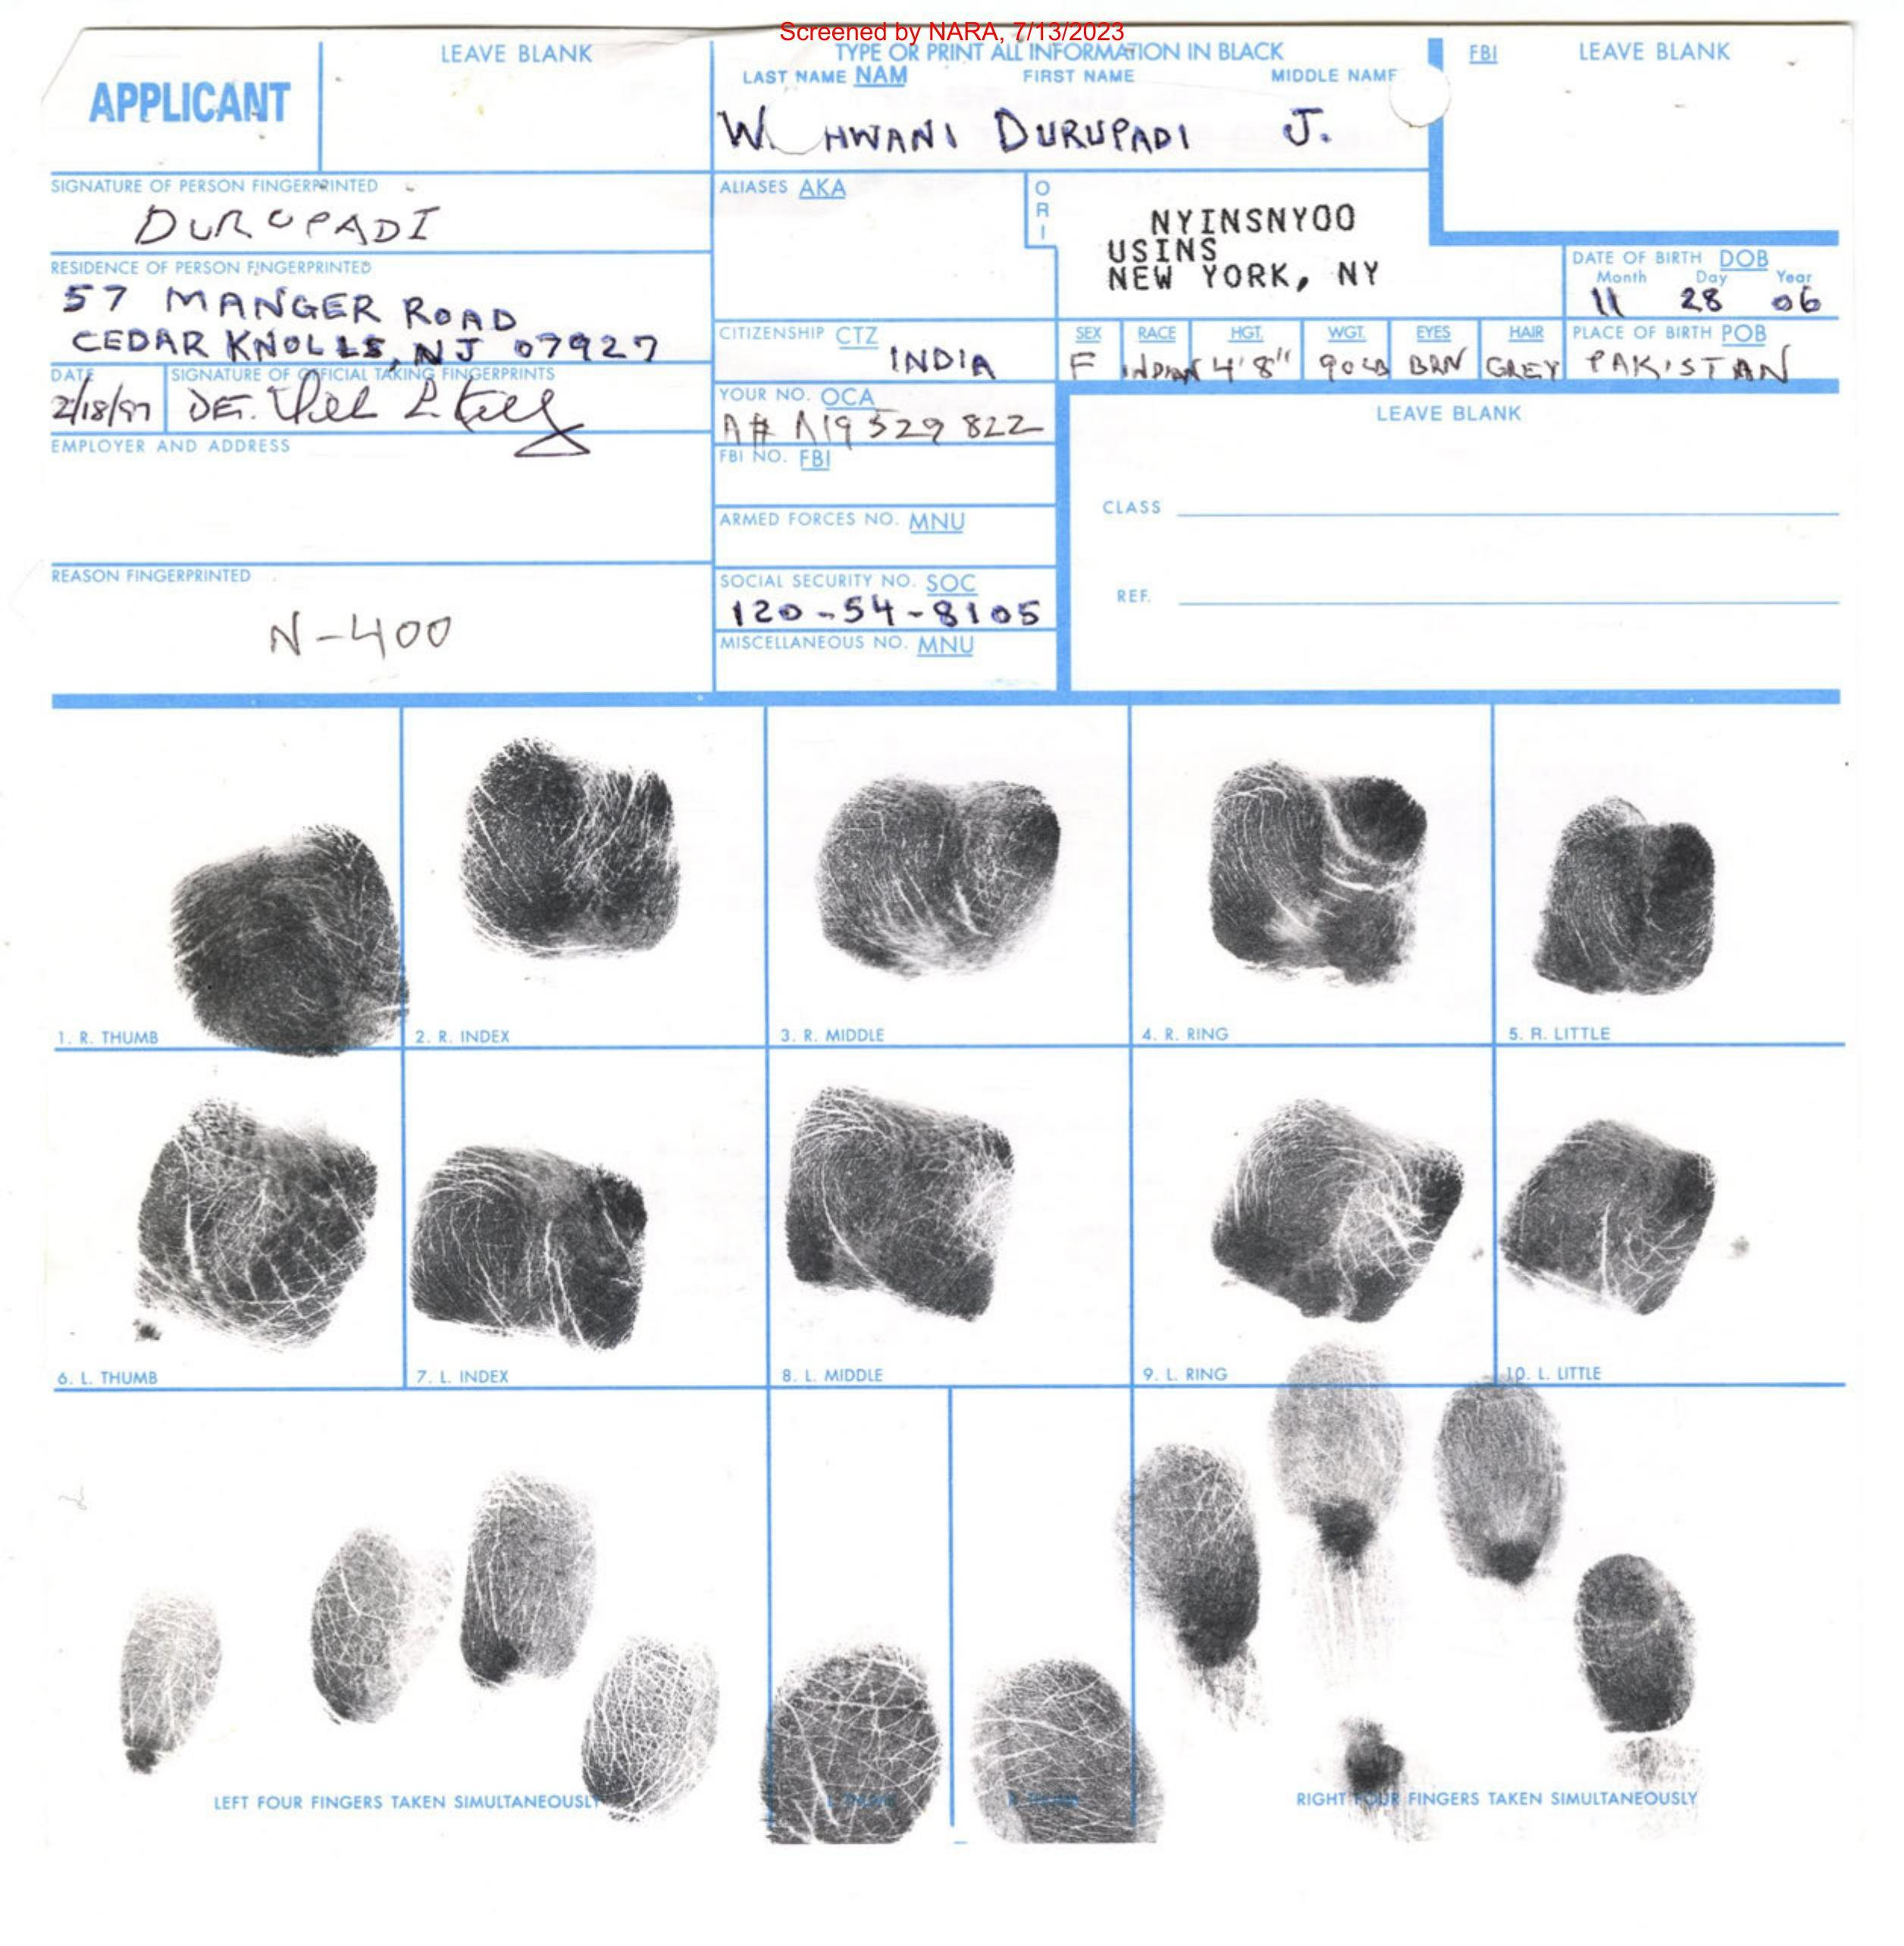 Screened by NARA, 7/13/2023
APPLICANT
LEAVE BLANK
TYPE OR PRINT ALL INFORMATION IN BLACK
LAST NAME NAM FIRST NAME MIDDLE NAME
HWANI DURUPADI J.
FBI LEAVE BLANK
SIGNATURE OF PERSON FINGERPRINTED
DURUPADI
ALIASES AKA
ORI
NYINSNY00
USINS
NEW YORK, NY
RESIDENCE OF PERSON FINGERPRINTED
57 MANGER ROAD
CEDAR KNOLLS, NJ 07927
DATE OF BIRTH DOB
Month Day Year
11 28 06
CITIZENSHIP CTZ
INDIA
SEX RACE HGT. WGT. EYES HAIR PLACE OF BIRTH POB
F INDIAN 4'8" 90LB BRN GREY PAKISTAN
DATE SIGNATURE OF OFFICIAL TAKING FINGERPRINTS
2/18/97 DET.
YOUR NO. OCA
A# A19 529 822
LEAVE BLANK
EMPLOYER AND ADDRESS
FBI NO. FBI
CLASS
ARMED FORCES NO. MNU
REASON FINGERPRINTED
N-400
SOCIAL SECURITY NO. SOC
120-54-8105
REF.
MISCELLANEOUS NO. MNU
1. R. THUMB 2. R. INDEX 3. R. MIDDLE 4. R. RING 5. R. LITTLE
6. L. THUMB 7. L. INDEX 8. L. MIDDLE 9. L. RING 10. L. LITTLE
LEFT FOUR FINGERS TAKEN SIMULTANEOUSLY RIGHT FOUR FINGERS TAKEN SIMULTANEOUSLY